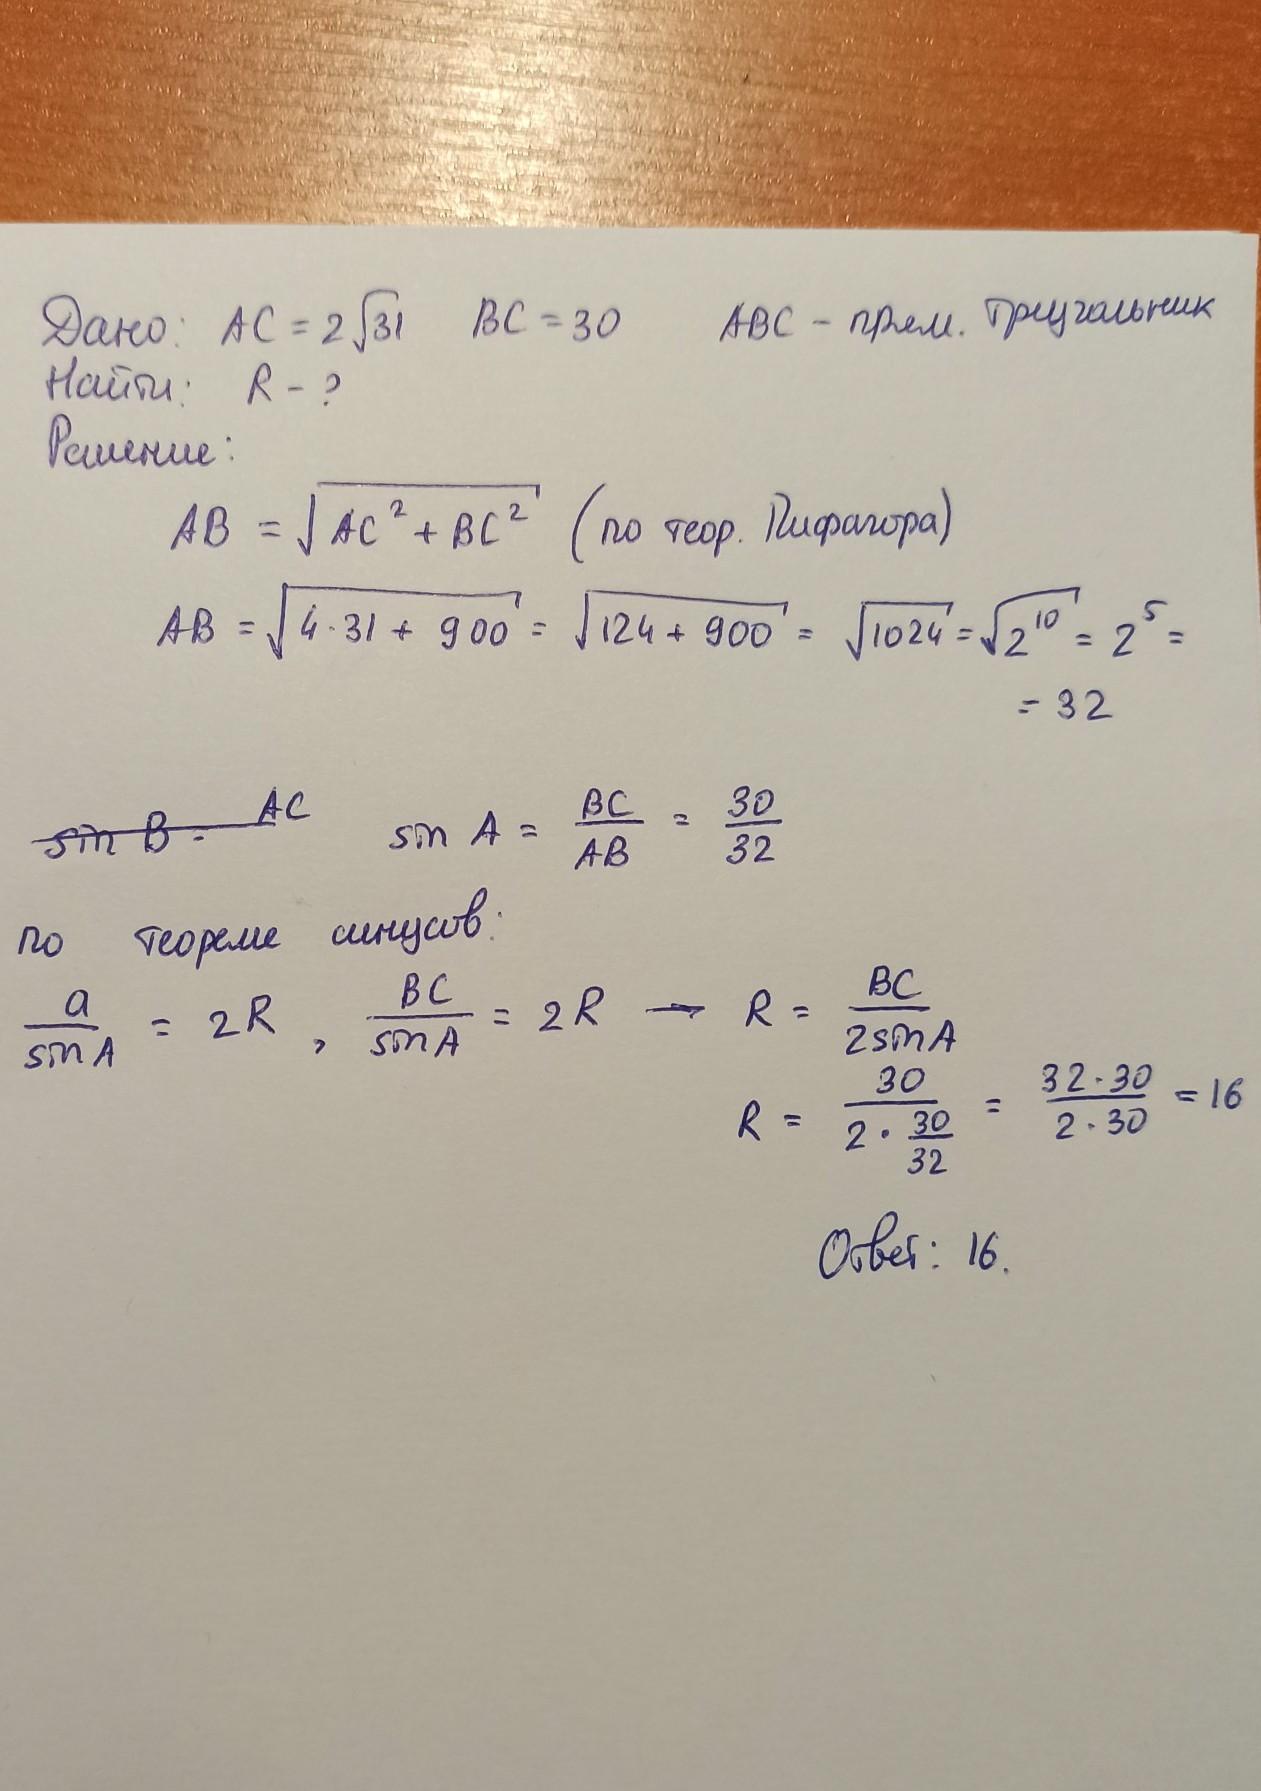 Дано: AC = 2√31 BC = 30 ABC - прям. треугольник
Найти: R - ?
Решение:
AB = √(AC² + BC²) (по теор. Пифагора)
AB = √(4·31 + 900) = √(124 + 900) = √1024 = √(2¹⁰) = 2⁵ =
= 32
sin B = AC sin A = BC/AB = 30/32
по теореме синусов:
a/sin A = 2R, BC/sin A = 2R → R = BC/2sin A
R = 30/(2·30/32) = 32·30/2·30 = 16
Ответ: 16.